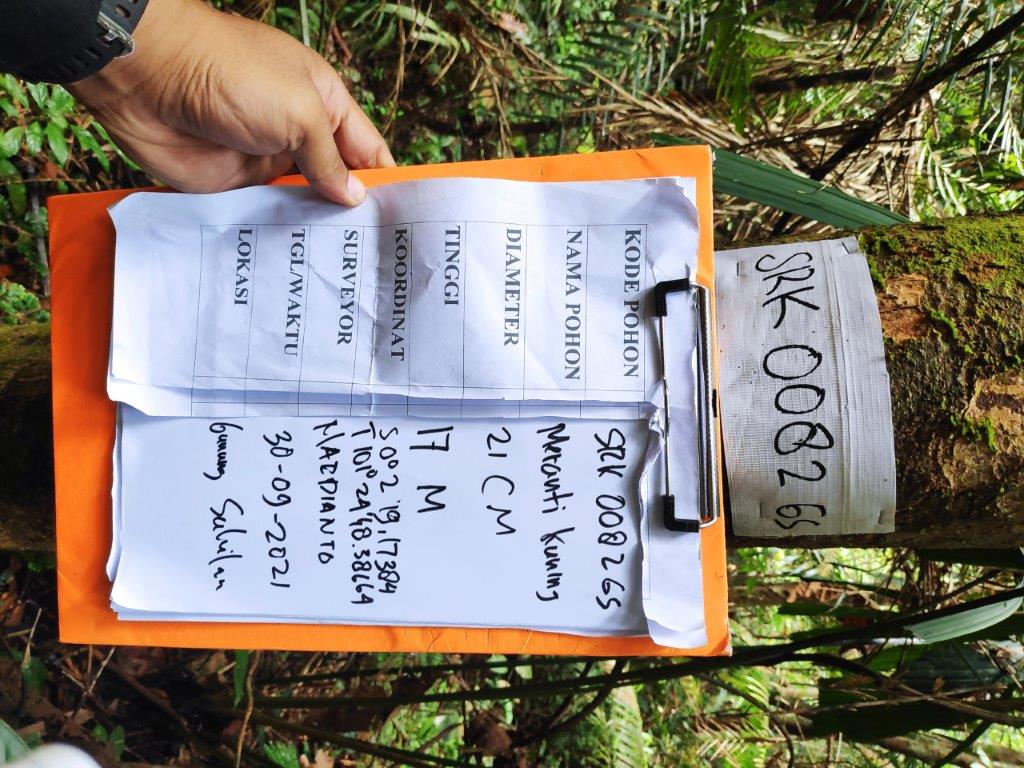 SRK 0082 GS
KODE POHON SRK 0082 GS
NAMA POHON Meranti Kuning
DIAMETER 21 CM
TINGGI 17 M
KOORDINAT S 00° 2 '19,17384
T 101° 24'48.38664
SURVEYOR MARDIANTO
TGL/WAKTU 30-09-2021
LOKASI Gunung Sahilan